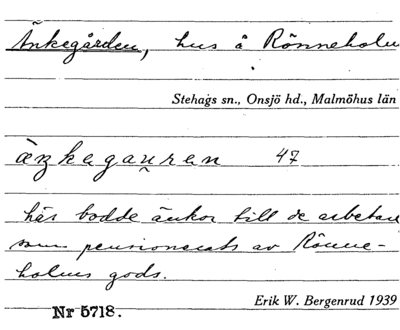 Änkegården, hus å Rönneholm
Stehags sn., Onsjö hd., Malmöhus län
äŋkegau̯ren 47
här bodde änkor till de arbetare
som pensionerats av Rönne-
holms gods.
Erik W. Bergenrud 1939
Nr 5718.